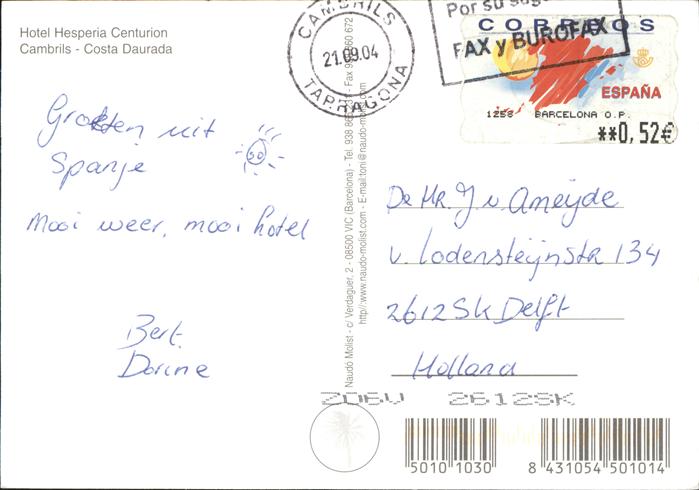 Hotel Hesperia Centurion
Cambrils - Costa Daurada
Groeten uit
Spanje
Mooi weer, mooi hotel
Bert
Dorine
CAMBRILS
21.09.04
TARRAGONA
Por su
FAX y BUROFAX
CORREOS
ESPAÑA
BARCELONA O.P.
**0,52€
Naudó Molist - c/ Verdaguer, 2 - 08500 VIC (Barcelona) - Tel. 938
http//:www.naudo-molist.com - E-mail:toni@naudo-molist.com
De Hr. J v. Ameijde
v. Lodensteijnstr 134
2612SK Delft
Holland
2612SK
5010 1030
8 431054 501014